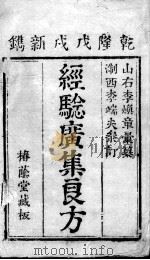 乾隆戊戌新鐫
山右李章彙纂
浙西李夫參訂
經驗廣集良方
椿蔭堂藏板